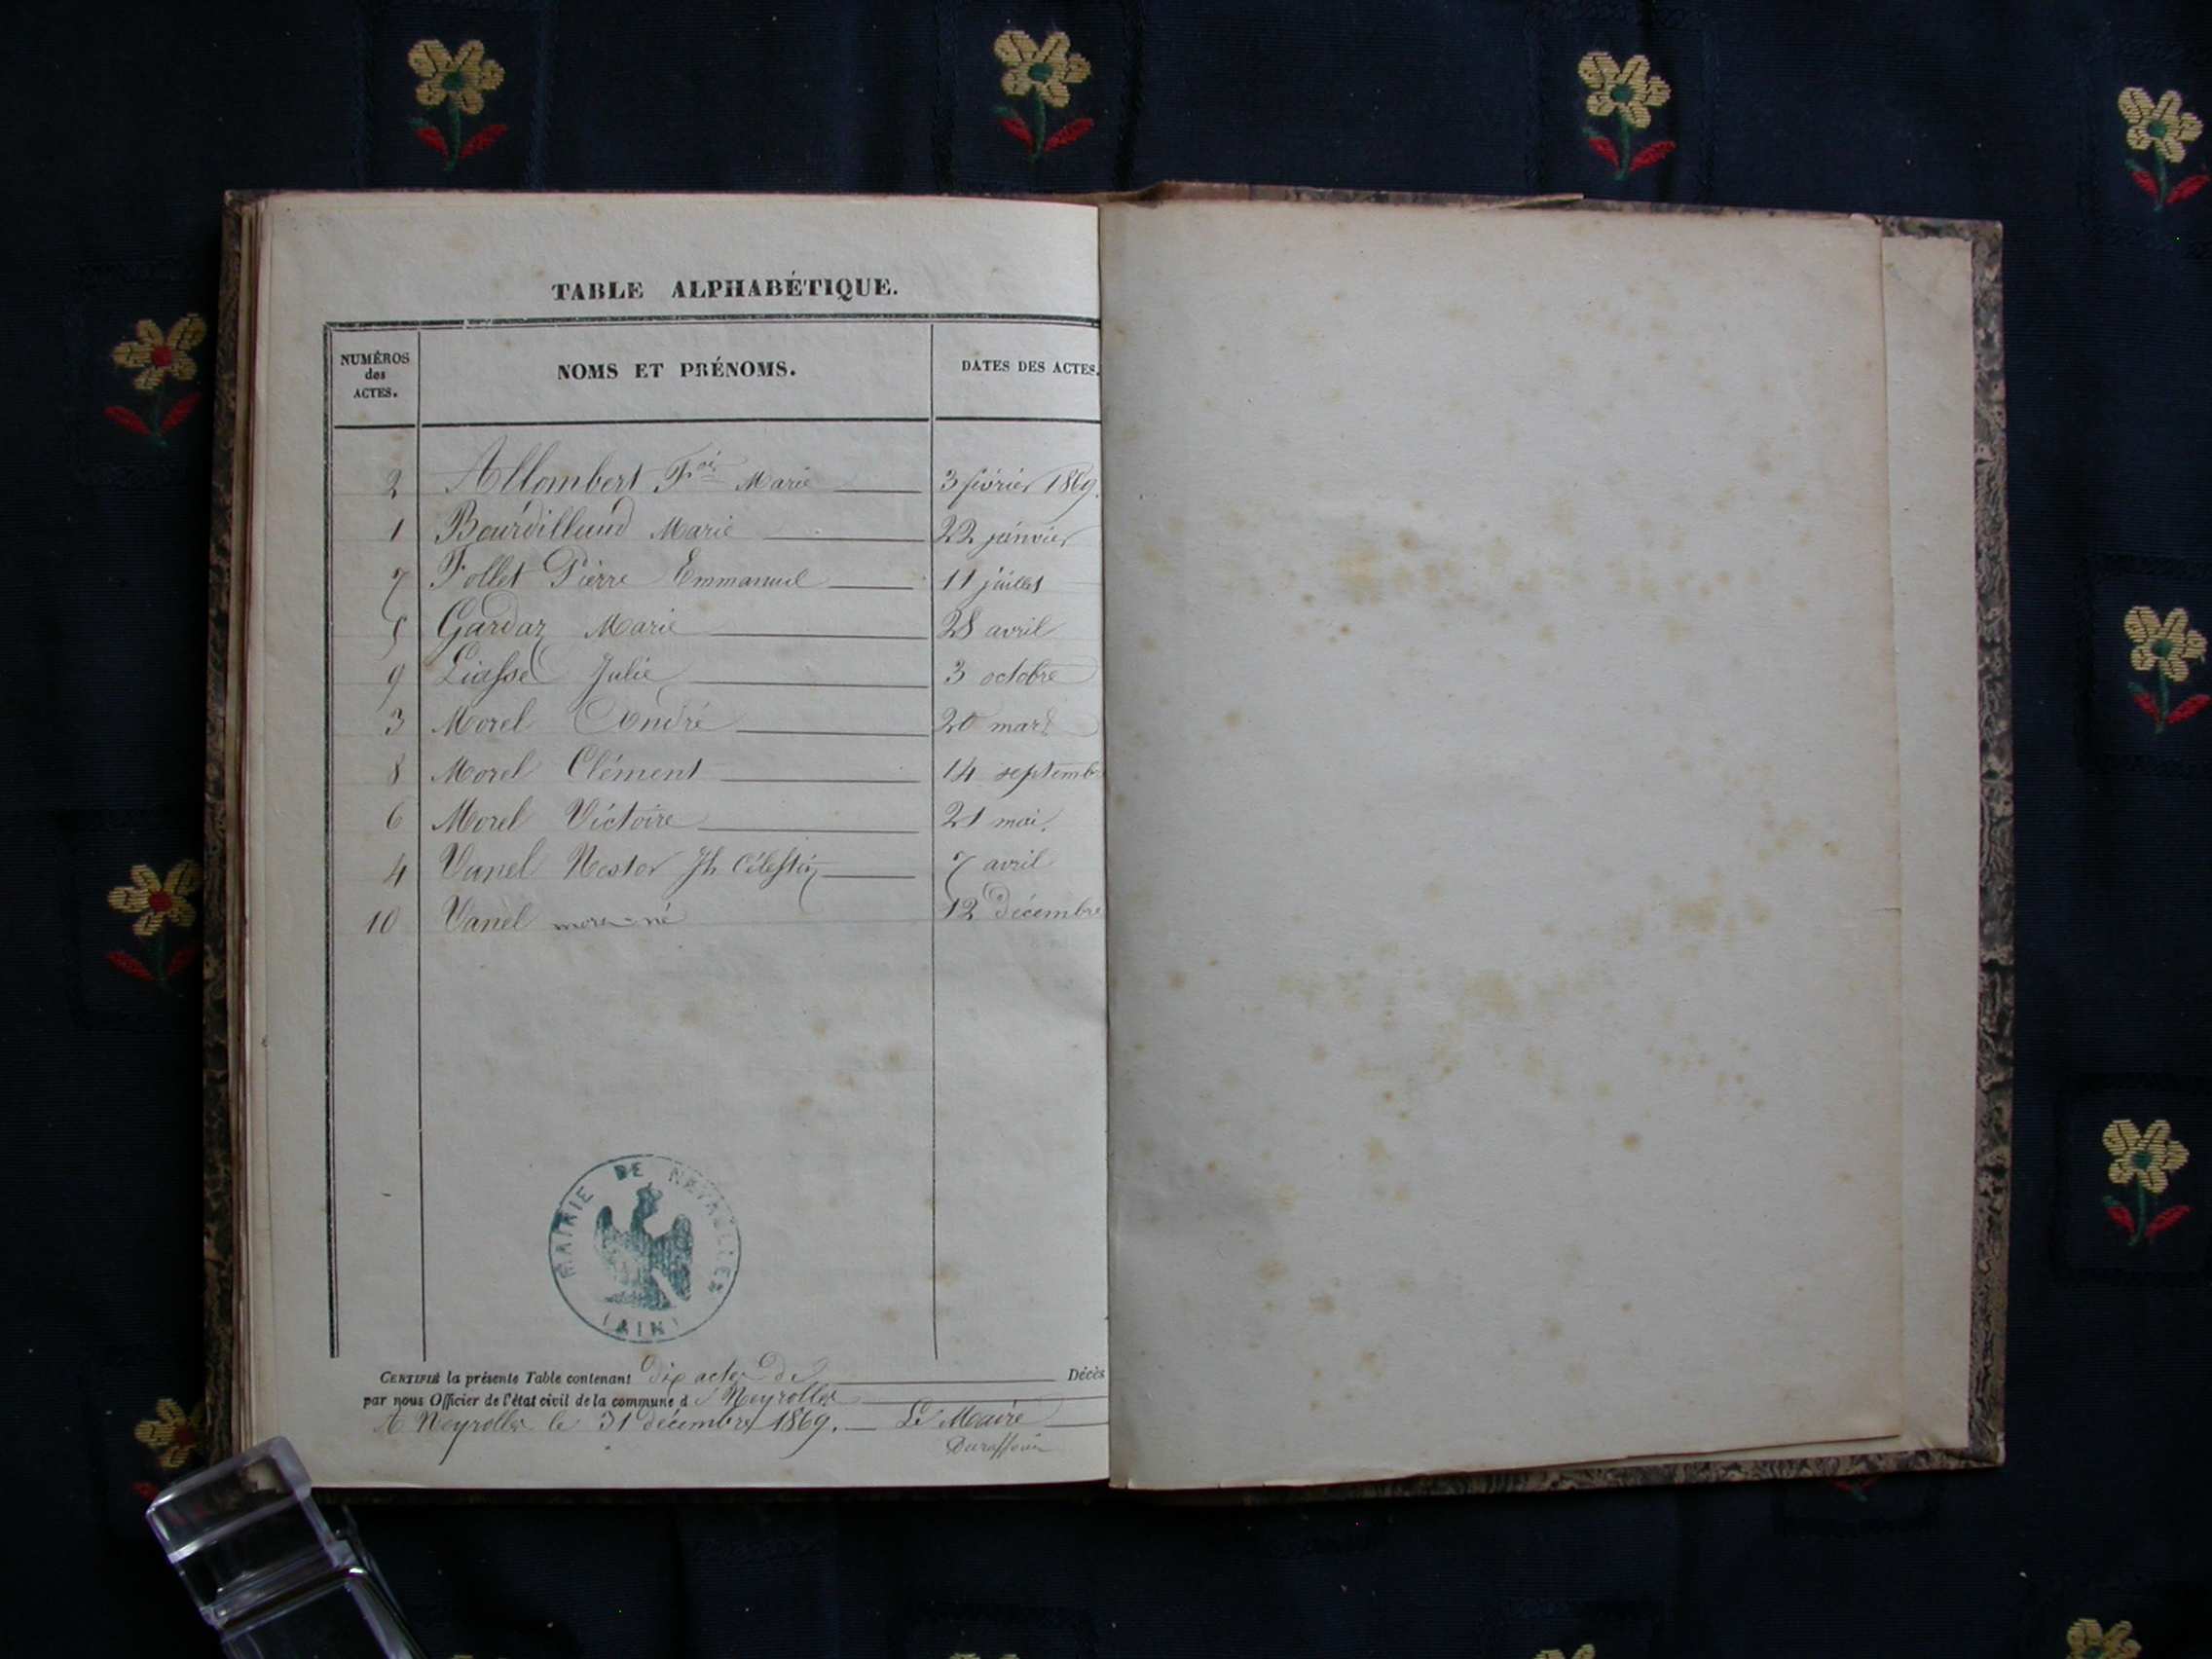 TABLE ALPHABÉTIQUE.
NUMÉROS des ACTES. NOMS ET PRÉNOMS. DATES DES ACTES.
2 Allombert Fois Marie 3 février 1869.
1 Bourdilland Marie 22 janvier
7 Follet Pierre Emmanuel 11 juillet
5 Gardaz Marie 28 avril
9 Liasse Julie 3 octobre
3 Morel André 20 mars
8 Morel Clément 14 septemb
6 Morel Victoire 21 mai.
4 Vanel Nestor Jh Célestin 7 avril
10 Vanel mort-né 12 décembre
MAIRIE DE NEYROLLES
(AIN)
CERTIFIÉ la présente Table contenant dix actes de Décès
par nous Officier de l'état civil de la commune d Neyrolles
A Neyrolles le 31 décembre 1869. Le Maire